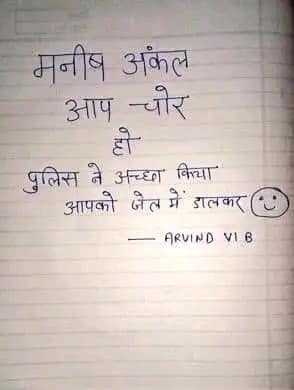 मनीष अंकल
आप चोर
हो
पुलिस ने अच्छा किया
आपको जेल में डालकर
— ARVIND VI B